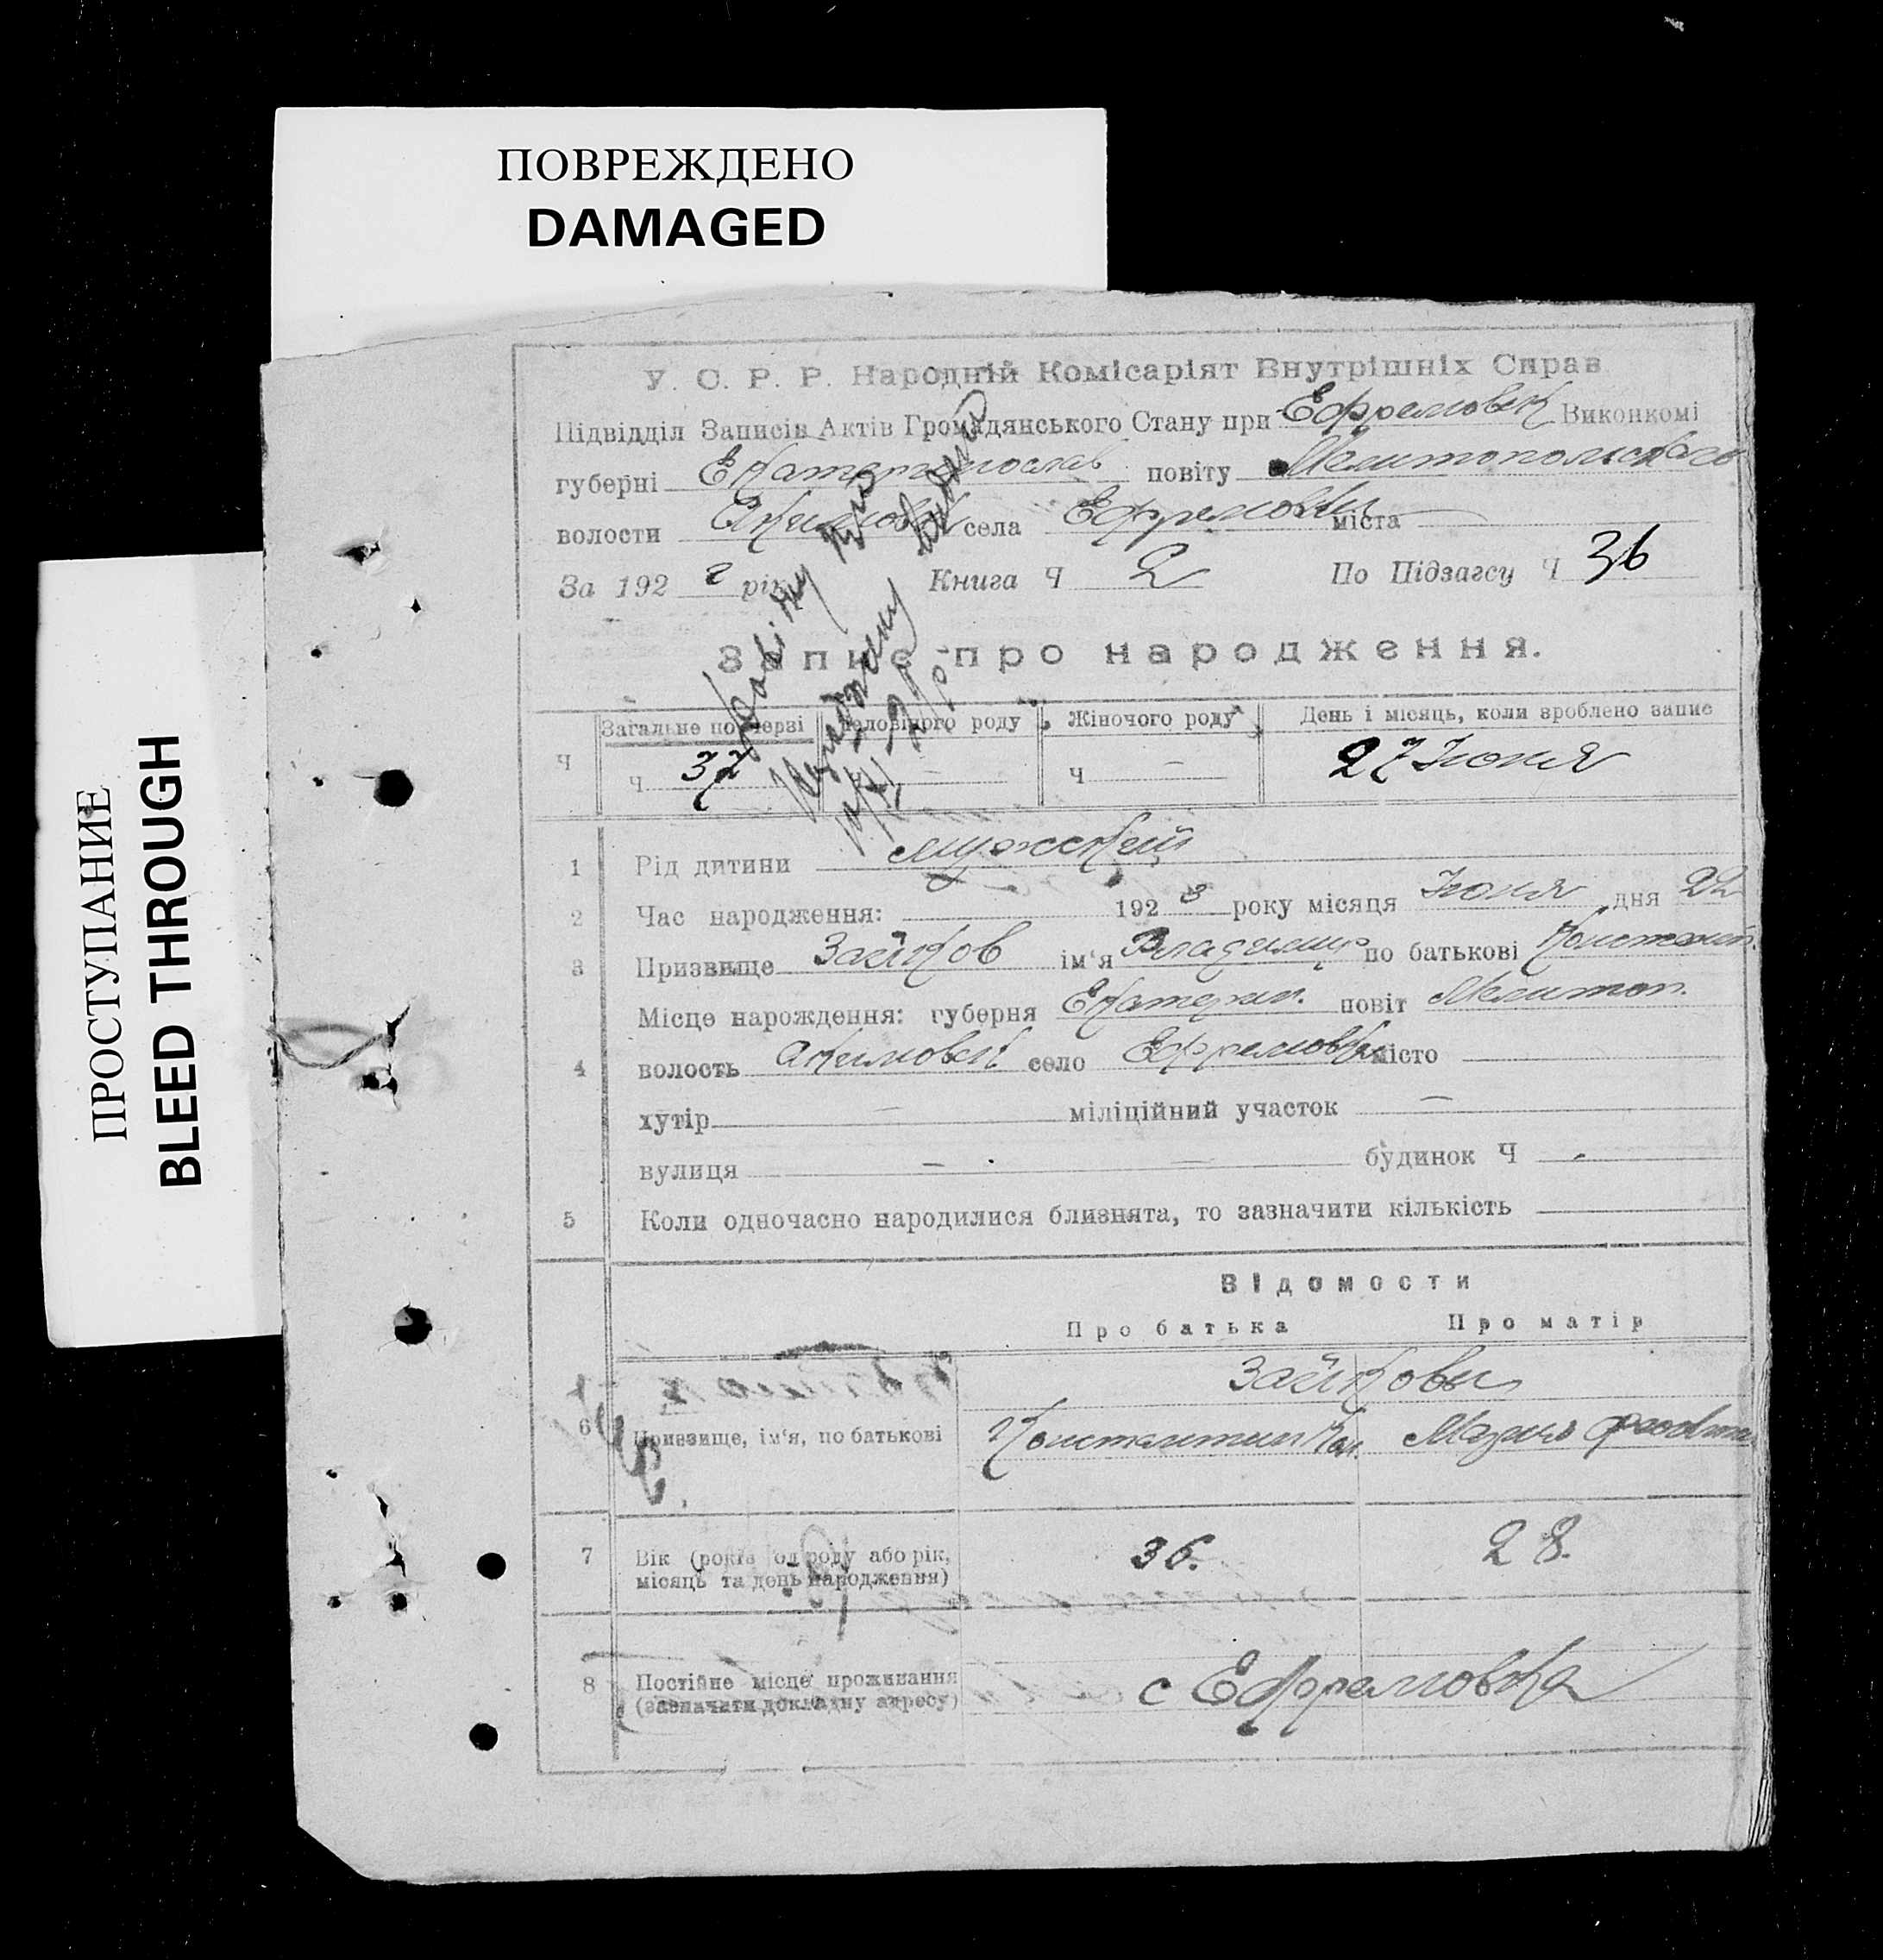 ПОВРЕЖДЕНО
DAMAGED
ПРОСТУПАНИЕ
BLEED THROUGH
У. С. Р. Р. Народній Комісаріят Внутрішніх Справ
Підвідділ Записів Актів Громадянського Стану при Ефремовск Виконкомі
губерні Екатеринослав повіту Мелитопольскаго
волости села Ефремовки міста
За 192 рік Книга Ч 2 По Підзагсу Ч 36
Запис про народження.
Ч Загальне по черзі Чоловічого роду Жіночого роду День і місяць, коли зроблено запис
ч 37 ч — ч — 27 Июня
1 Рід дитини мужский
2 Час народження: 192 3 року місяця Июня дня 22
3 Призвище Зайков ім'я Владимир по батькові Констант.
Місце нарождення: губерня Екатерин. повіт Мелитоп.
4 волость Акимовск село Ефремовка місто
хутір — міліційний участок —
вулиця — — будинок Ч
5 Коли одночасно народилися близнята, то зазначити кількість
Відомости
Про батька Про матір
Зайковы
6 Призвище, ім'я, по батькові Константин Мария
7 Вік (років од роду або рік, 36. 28.
місяць та день народження)
8 Постійне місце проживання с Ефремовка
(зазначити докладну адресу)